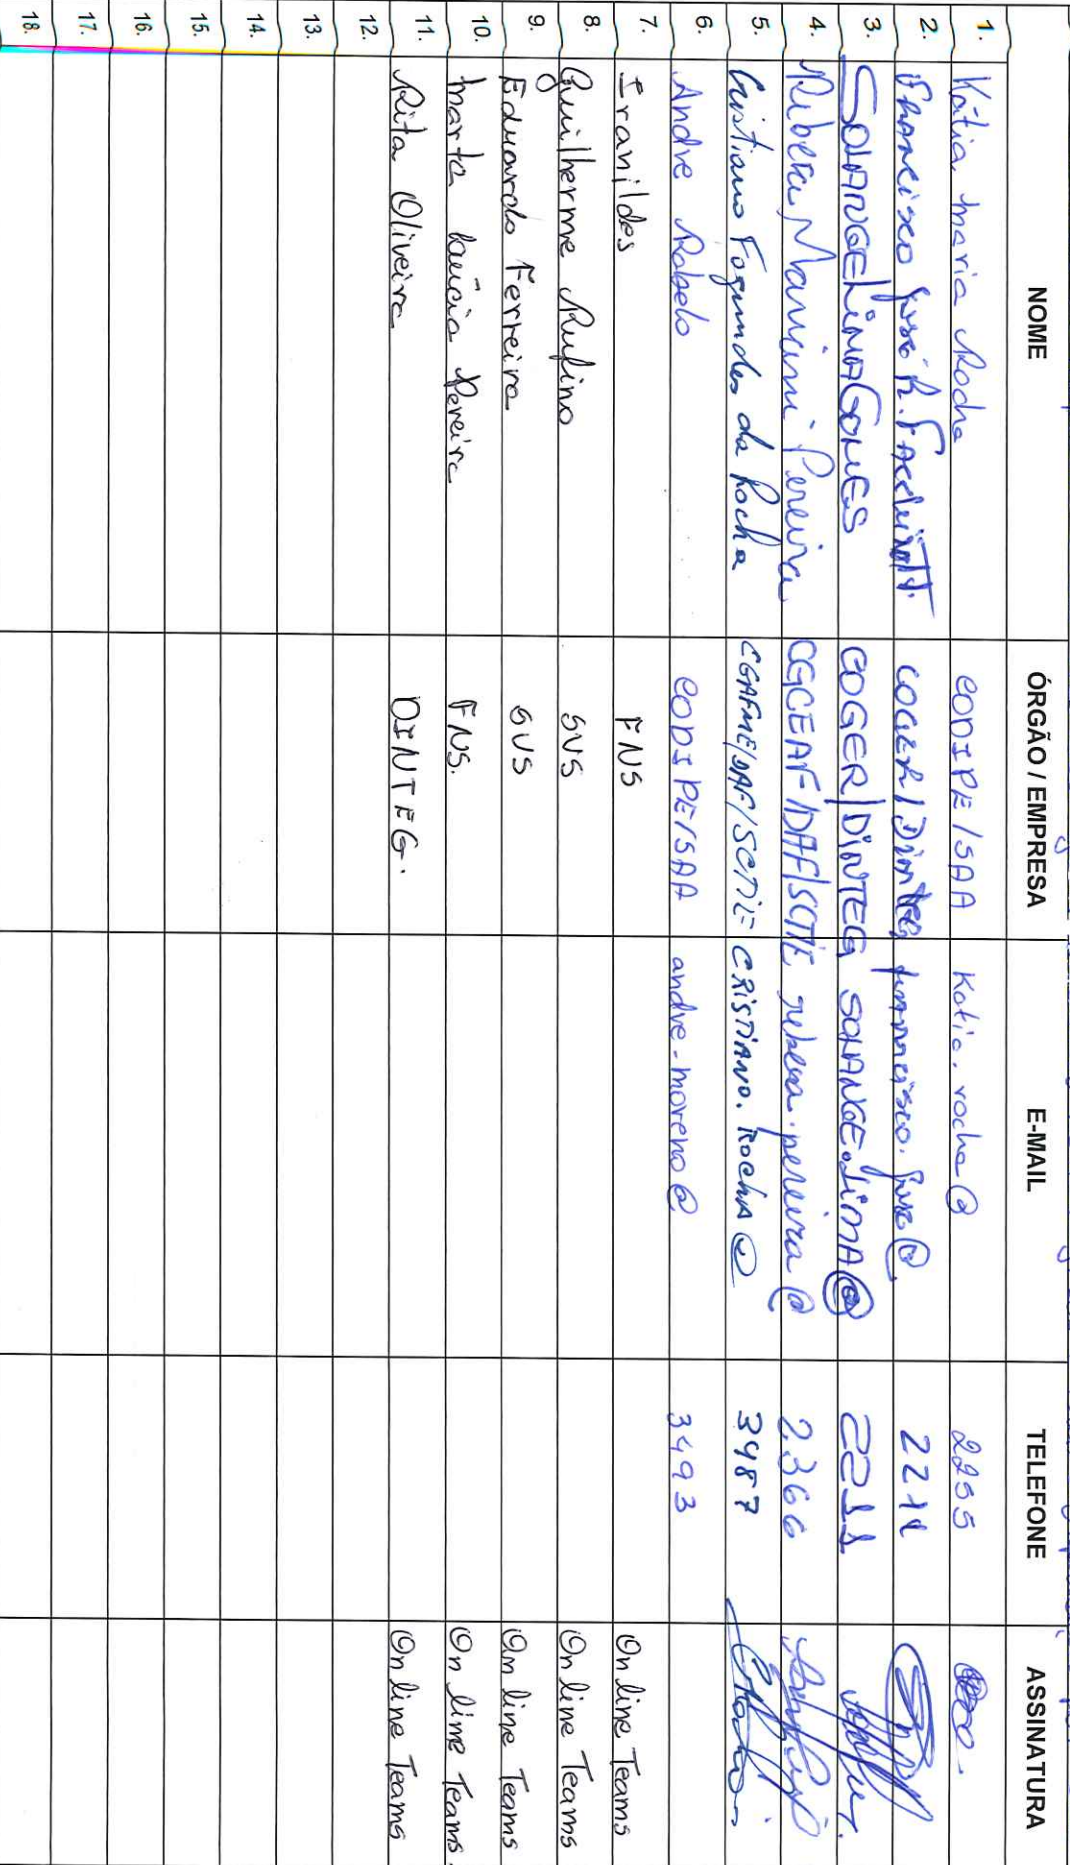 NOME ÓRGÃO / EMPRESA E-MAIL TELEFONE ASSINATURA
1. Kátia Maria Rocha CODIPE/SAA Katia.rocha@ 2255
2. Francisco José R. COGER/Dinteg francisco.jose@ 2211
3. SOLANGE LIMA GOMES COGER/DINTEG SOLANGE.LIMA@ 2211
4. Rebeca Mancini Pereira CGCEAF/DAF/SCTIE rebeca.pereira@ 2366
5. Cristiano Fagundes da Rocha CGAFME/DAF/SCTIE CRISTIANO.ROCHA@ 3487
6. Andre Rabelo CODIPE/SAA andre.moreno@ 3493
7. Iranildes FNS On line Teams
8. Guilherme Rufino SVS On line Teams
9. Eduardo Ferreira SVS On line Teams
10. Marta Lúcia Pereira FNS. On line Teams.
11. Rita Oliveira DINTEG. On line Teams
12.
13.
14.
15.
16.
17.
18.